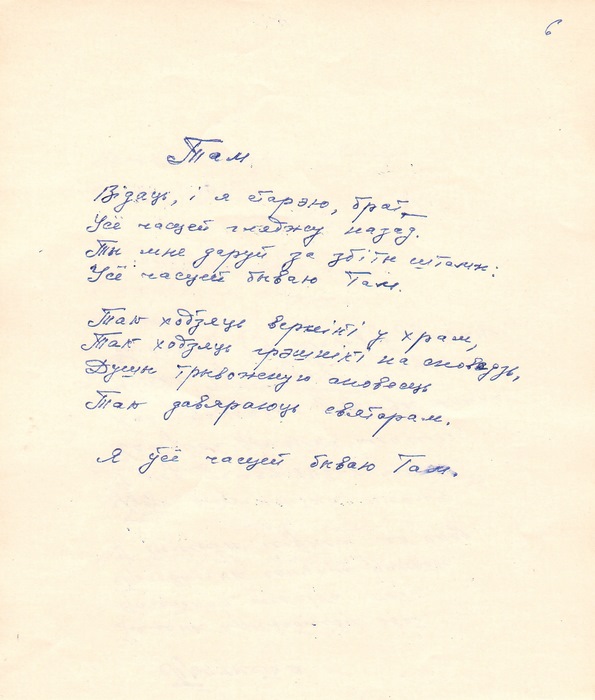 6
Там.
Відаць, і я старэю, брат, —
Усё часцей гляджу назад.
Ты мне даруй за збіты штамп:
Усё часцей бываю Там.
Так ходзяць вернікі у храм,
Так ходзяць грэшнікі на споведзь,
Душы трывожную споведзь
Так давяраюць святарам.
Я ўсё часцей бываю Там.